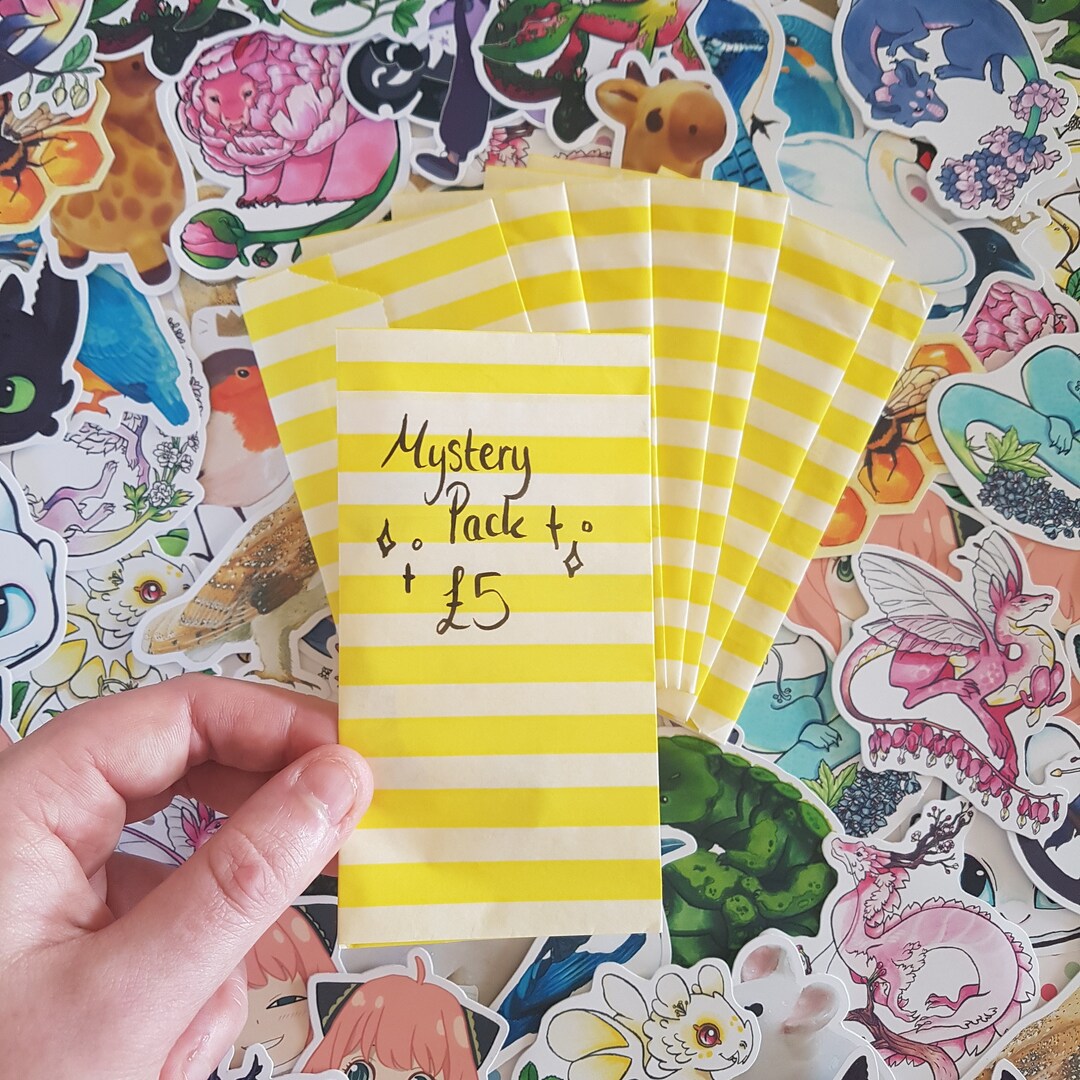 Mystery
Pack
£5